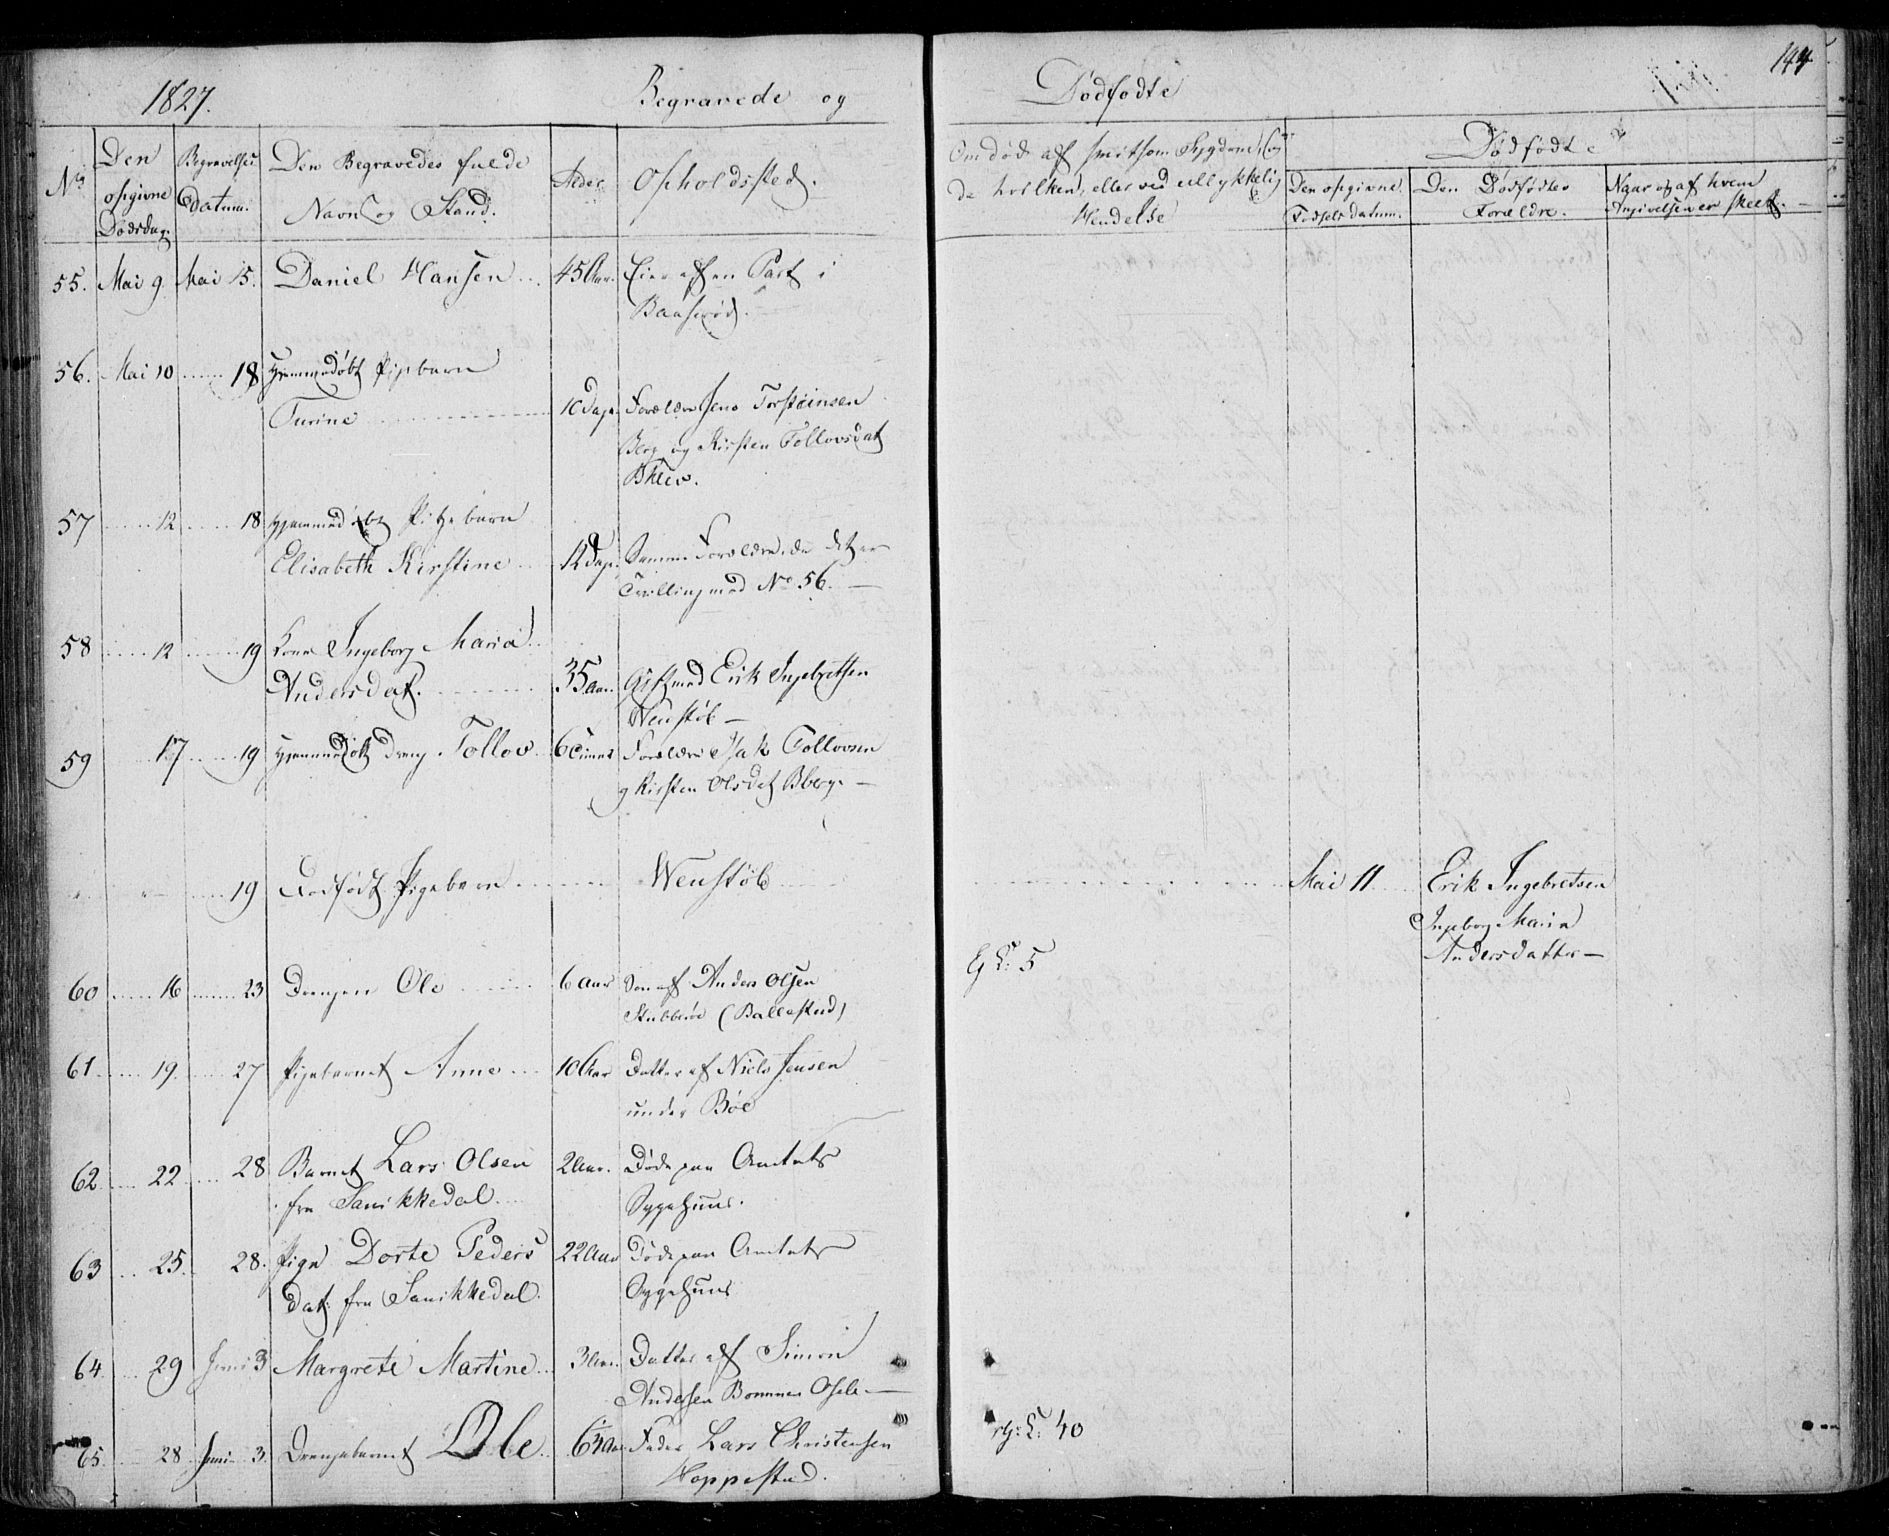 1827.
Begravede og
Dødfødte
144
No
Den opgivne Dødsdag.
Begravelses Datum.
Den Begravedes fulde Navn og Stand.
Alder
Opholdssted.
Om død af smitsom Sygdom, og da hvilken, eller ved ulykkelig Hendelse
Dødfødte
Den opgivne Fødsels datum.
Den Dødfødtes Forældre.
Naar og af hvem Angivelsen er skeet.
55. Mai 9. Mai 15. Daniel Hansen 45 Aar. Eier af en Part i
Baaserød.
56. Mai 10 18 Hjemmedøbt Pigebarn
Turine 10 Dage Forældre Jens Torsteinsen
Berg og Kirsten Tollovsdat
57 12 18 Hjemmedøbt Pigebarn
Elisabeth Kirstine 12 Dage Samme Forældre, da det er
Tvilling med No 56.
58 12 19 Kone Ingeborg Maria
Andersdat. 35 Aar. Gift med Erik Ingebretsen
Wenstøb
59 17 19 Hjemmedøbt Dreng Tollov 6 Timer Forældre Isak Tollovsen
og Kirsten Olsdat Bberg
19 Dødfødt Pigebarn Wenstøb Mai 11 Erik Ingebretsen
Ingeborg Maria
Andersdatter
60 16 23 Drengen Ole 6 Aar Søn af Anders Olsen
Stubberøe (Ballestad)
61 19 27 Pigebarnet Anne 10 Aar Datter af Niels Jensen
under Bøe
62 22 28 Barnet Lars Olsen 2 Aar. Døde paa Amtets
fra Sanikkedal Sygehuus.
63 25 28. Pige Dorte Peders 22 Aar Døde paa Amtets
dat. fra Sanikkedal. Sygehuus
64 29 Juni 3 Margrete Martine 3 Aar. Datter af Simon
Andersen
65 28 Juni 3 Drengebarnet Ole Fader Lars Christensen
Hoppestad.
5
40